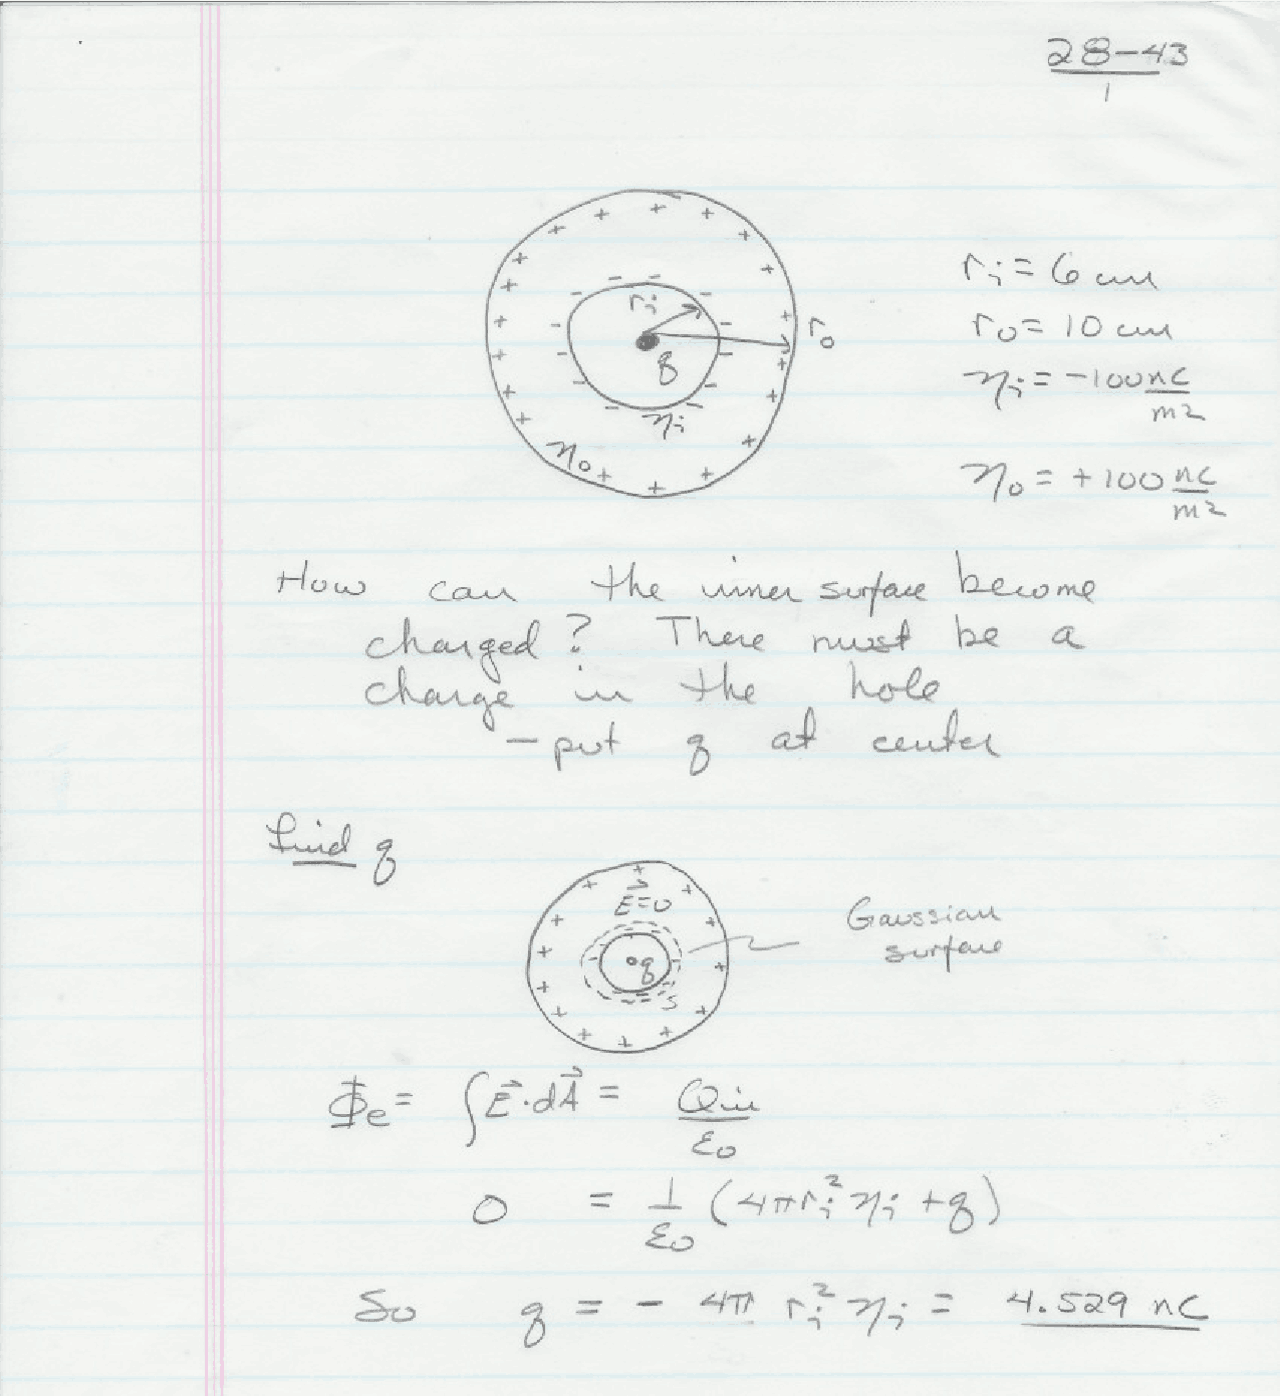 28-43
1
rᵢ = 6 cm
r₀ = 10 cm
ηᵢ = -100 nC/m²
η₀ = +100 nC/m²
rᵢ
r₀
q
ηᵢ
η₀
How can the inner surface become
charged? There must be a
charge in the hole
- put q at center
Find q
E⃗=0
Gaussian
surface
q
s
Φe = ∫E⃗·dA⃗ = Qin/ε₀
0 = 1/ε₀ (4πrᵢ²ηᵢ + q)
So q = - 4π rᵢ² ηᵢ = 4.529 nC